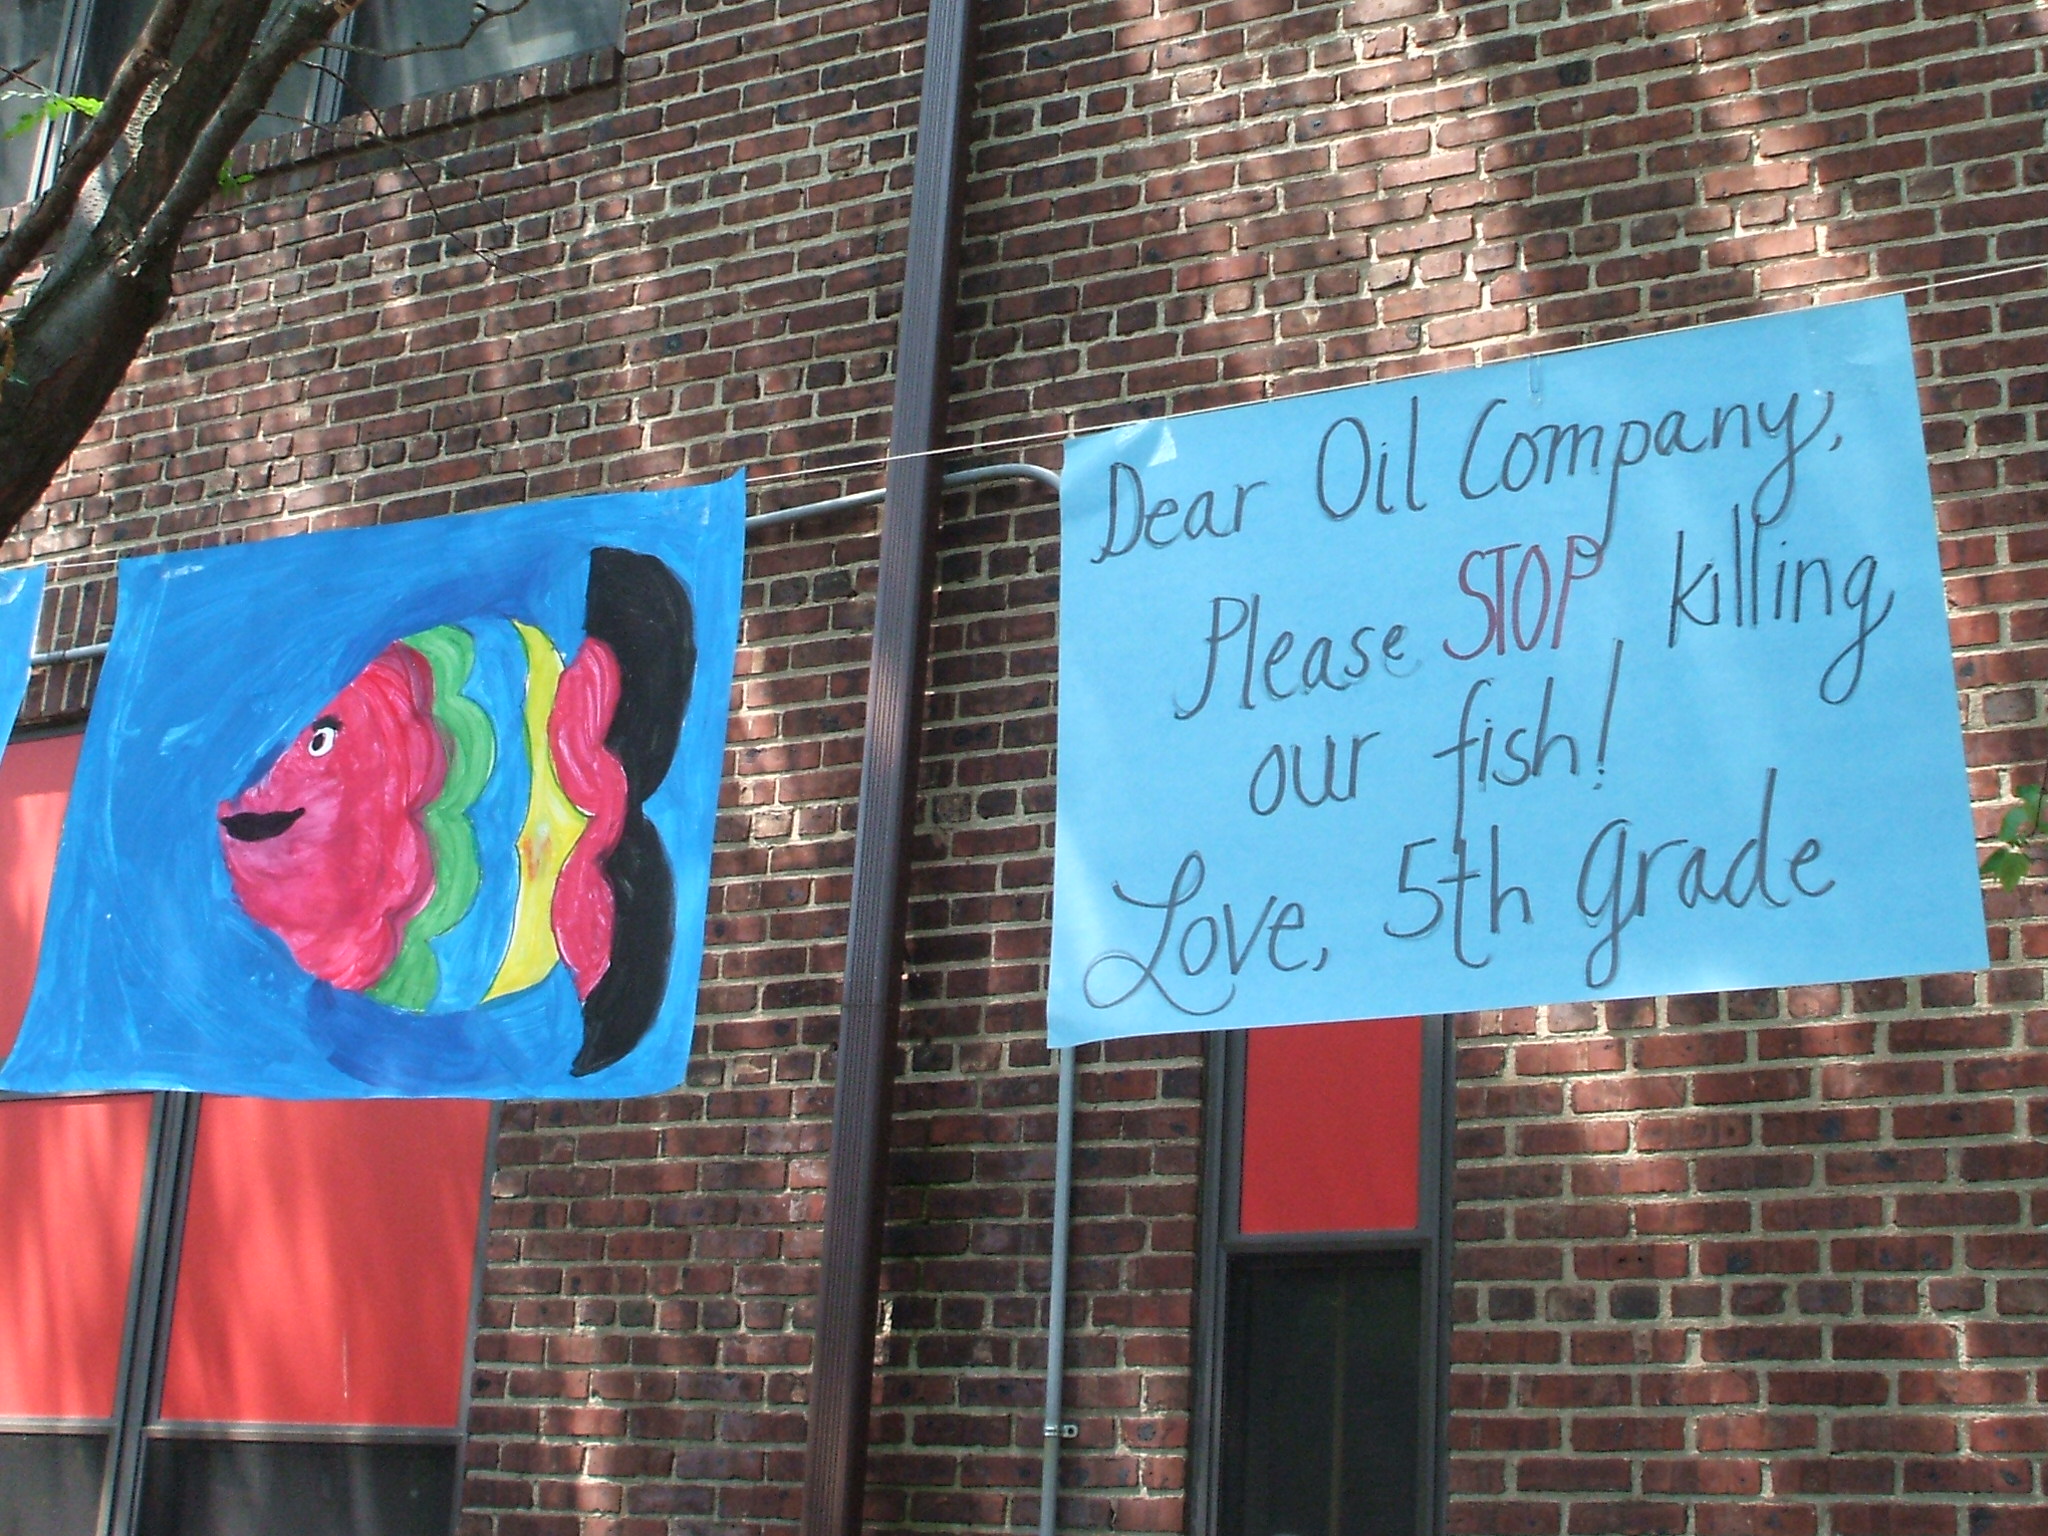 Dear Oil Company,
Please STOP killing
our fish!
Love, 5th grade